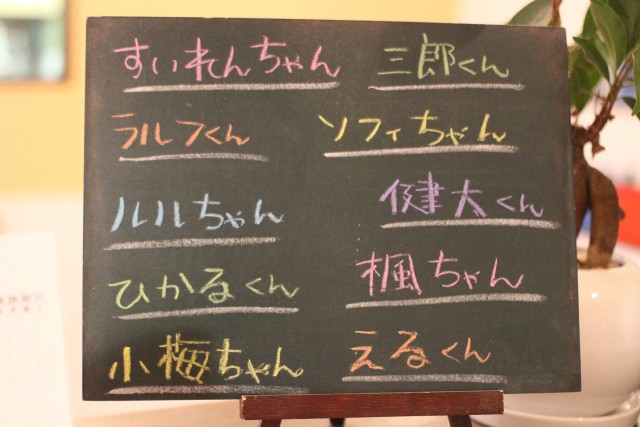 すいれんちゃん
三郎くん
ラルフくん
ソフィちゃん
ルルちゃん
健太くん
ひかるくん
楓ちゃん
小梅ちゃん
えるくん